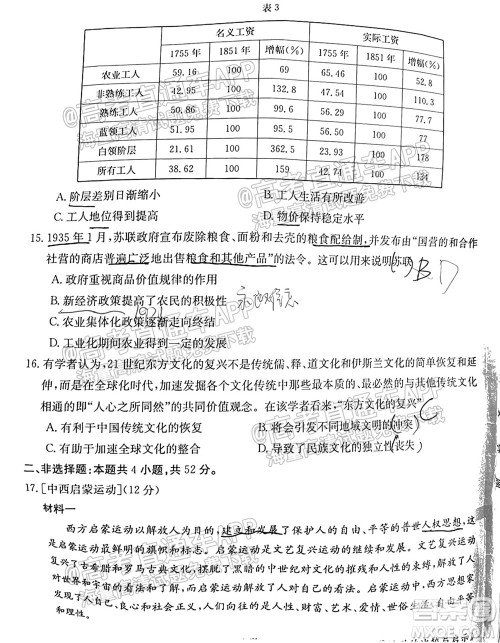 表 3
名义工资 实际工资
1755 年 1851 年 增幅(%) 1755 年 1851 年 增幅(%)
农业工人 59.16 100 69 65.46 100 52.8
非熟练工人 42.95 100 132.8 47.54 100 110.3
熟练工人 50.86 100 99.6 56.29 100 77.7
蓝领工人 51.95 100 95.5 56.50 100 77
白领阶层 21.61 100 362.5 23.93 100 178
所有工人 38.62 100 159 42.74 100 134
A. 阶层差别日渐缩小 B. 工人生活有所改善
C. 工人地位得到提高 D. 物价保持稳定水平
15. 1935 年 1 月,苏联政府宣布废除粮食、面粉和去壳的粮食配给制,并发布由“国营的和合作
社营的商店普遍广泛地出售粮食和其他产品”的法令。这可以用来说明苏联
A. 政府重视商品价值规律的作用
B. 新经济政策提高了农民的积极性
C. 农业集体化政策逐渐走向终结
D. 工业化期间农业得到一定的发展
16. 有学者认为,21 世纪东方文化的复兴不是传统儒、释、道文化和伊斯兰文化的简单恢复和延
伸,而是在全球化时代,加速发掘各个文化传统中那些最本质的、最必然的与其他传统文化
相通的即“人心之所同然”的共同价值观念。在该学者看来,“东方文化的复兴”
A. 有利于中国传统文化的恢复 B. 将会引发不同文明的冲突
C. 有助于加速全球文化的整合 D. 导致了民族文化的独立性丧失
二、非选择题:本题共 4 小题,共 52 分。
17. [中西启蒙运动](12 分)
材料一
西方启蒙运动以解放人为目的,建立和发展了保护人的自由、平等的普世人权思想,这
成为启蒙运动最鲜明的旗帜和标志。启蒙运动是文艺复兴运动的继续和发展。文艺复兴运
动复兴了古希腊和罗马古典文化,摆脱了黑暗的中世纪对文化的枷锁和人性的束缚,解放了人
对世界和宇宙的看法和了解,而启蒙运动解放了人对自己的看法。启蒙运动以自由、平等
来尊重人自己、良心和社会正义,人们向往的是人性、财富、艺术、爱情、世俗生活
和理性。